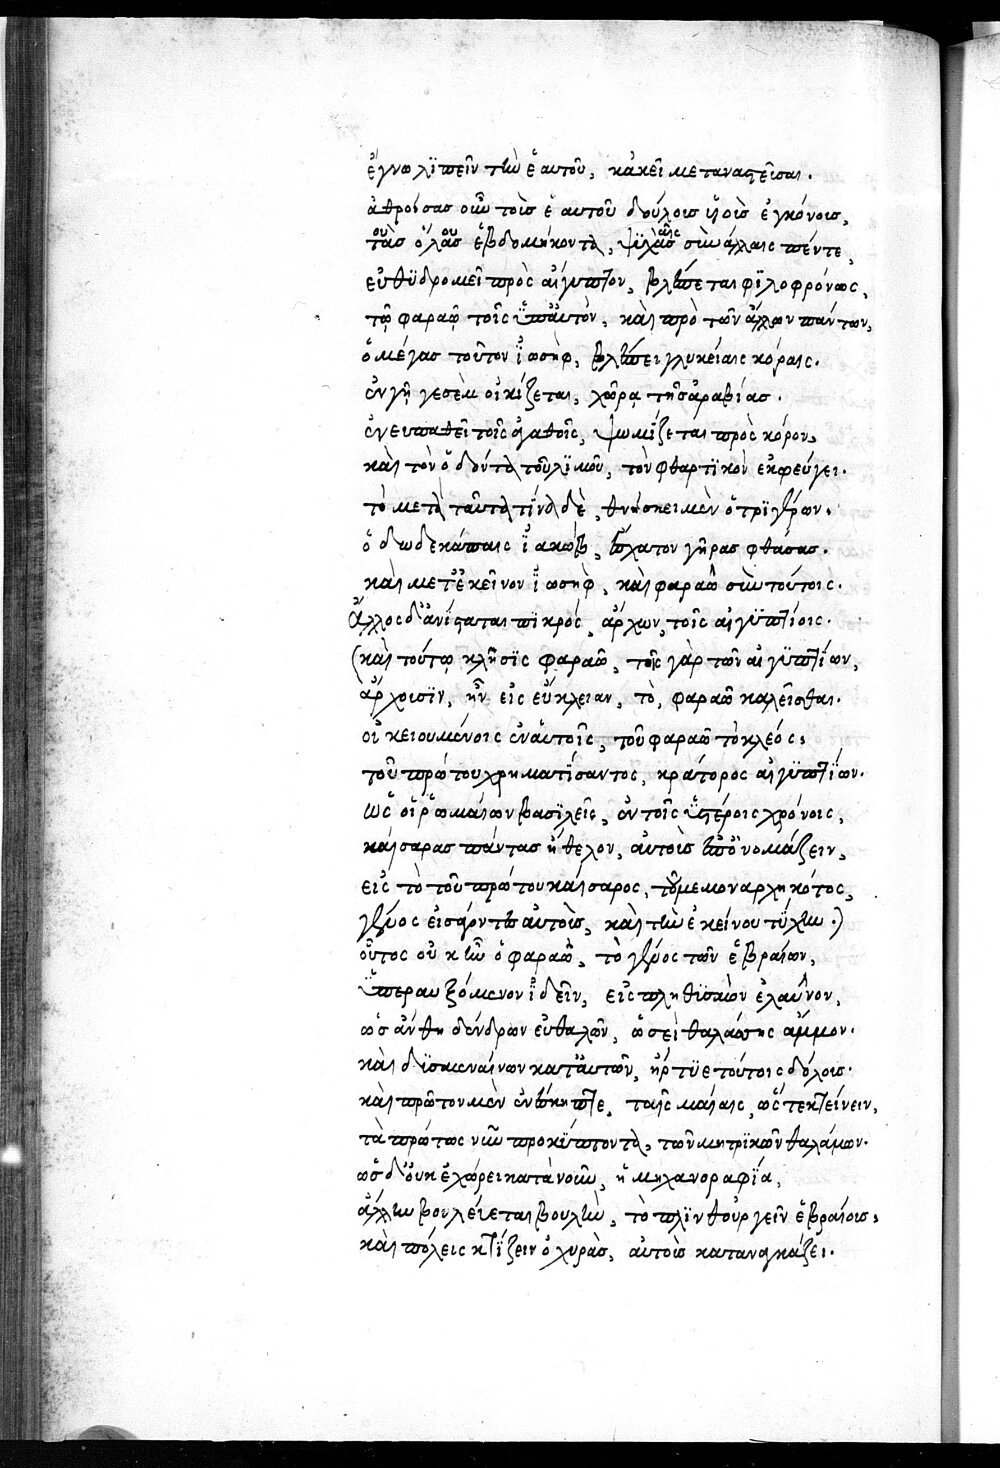 ἔγνω λϊπεῖν τὴν ἑαυτοῦ, κἀκεῖ μεταναστεῦσαι.
ἀθροίσας οὖν τοὺς ἑαυτοῦ δούλους ὑϊοὺς ἐγκόνοις,
τοὺς ὅλους ἑβδομήκοντα, ψϊχὰς σὺν ἄλλαις πέντε,
εὐθϋδρομεῖ πρὸς αἴγυπτον, βλέπεται φϊλοφρόνως,
τῷ φαραῷ τοῖς ὑπ' αὐτὸν, καὶ πρὸ τῶν ἄλλων πάντων,
ὁ μέγας τοῦτον ἰωσὴφ, βλέπει γλυκείαις κόραις.
ἐν γῇ γεσὲμ οἰκίζεται, χώρᾳ τῆς ἀραβίας.
ἐνευπαθεῖ τοῖς ἀγαθοῖς, ψωμίζεται πρὸς κόρον,
καὶ τὸν ὀδόντα τοῦ λϊμοῦ, τὸν φθαρτϊκὸν ἐκφεύγει.
τὸ μετὰ ταῦτα τί; θνήσκει μὲν ὁ τρϊγέρων.
ὁ δωδεκάπαις ἰακὼβ, ἔσχατον γῆρας φθάσας.
καὶ μετ' ἐκεῖνον ἰωσὴφ, καὶ φαραὼ σὺν τούτοις.
Ἄλλος δ' ἀνίσταται πϊκρὸς, ἄρχων, τοῖς αἰγϋπτίοις.
(καὶ τούτῳ κλῆσϊς φαραὼ, τοῖς γὰρ τῶν αἰγϋπτίων,
ἄρχουσϊν, ἦν εἰς εὔκλειαν, τὸ, φαραὼ καλεῖσθαι.
οἰκειουμένοις ἐν αὐτοῖς, τοῦ φαραὼ τὸ κλέος,
τοῦ πρώτου χρηματίσαντος, κράτορος αἰγϋπτίων.
ὡς οἱ ῥωμαίων βασϊλεῖς, ἐν τοῖς ὑστέροις χρόνοις,
καίσαρας πάντας ἤθελον, αὐτοὺς ἐπονομάζειν,
εἰς τὸ τοῦ πρώτου καίσαρος, τοῦ μεμοναρχηκότος,
γένος εἰσάροντες αὐτοὺς, καὶ τὴν ἐκείνου τύχην.)
οὗτος οὐκ ἦν ὁ φαραὼ, τὸ γένος τῶν ἑβραίων,
ὑπεραυξόμενον ἰδεῖν, εἰς πληθϊσμὸν ἐλαῦνον,
ὡς ἄνθη δένδρων εὐθαλῶν, ὡσεὶ θαλάσσης ἄμμον.
καὶ δϋσμεναίνων κατ' αὐτῶν, ἤρτϋε τούτοις δόλους.
καὶ πρῶτον μὲν ἐνέσκηπτε, ταῖς μαίαις, ὥστε κτείνειν,
τὰ πρώτως νῦν προκύπτοντα, τῶν μητρϊκῶν θαλάμων.
ὡς δ' οὐκ ἐχώρει κατὰ νοῦν, ἡ μηχανοραφΐα,
ἄλλην βουλεύεται βουλὴν, τὸ πλϊνθουργεῖν ἑβραίους,
καὶ πόλεις κτΐζειν ὀχυρὰς, αὐτοὺς καταναγκάζει.